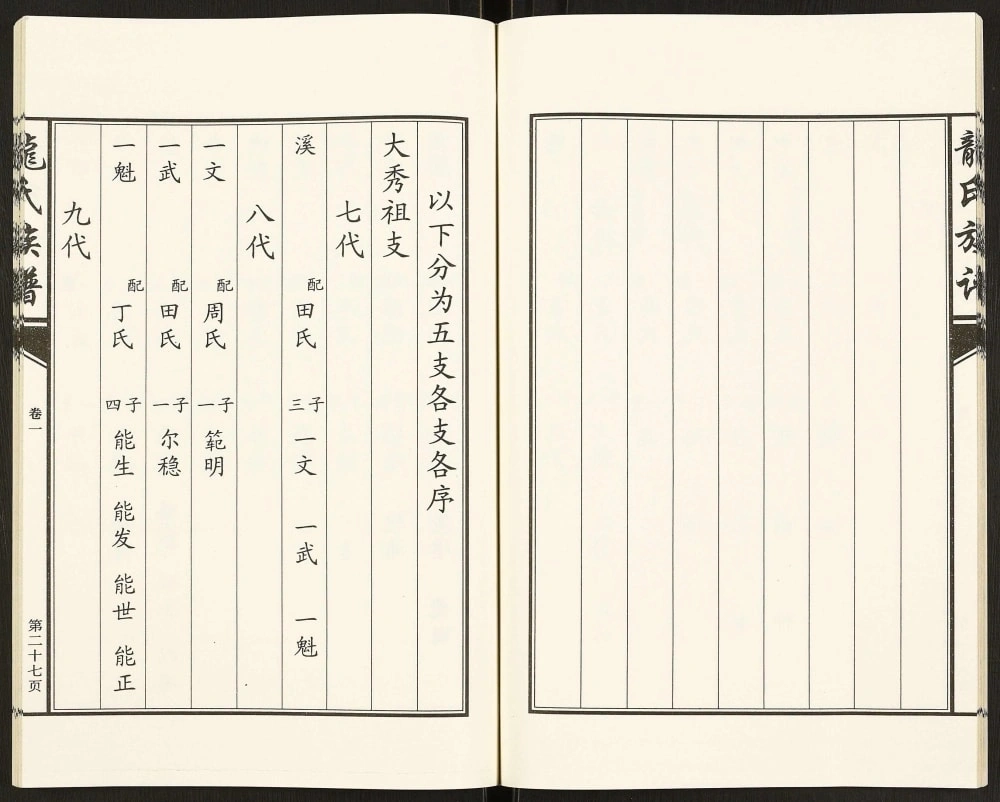 龍氏族譜
以下分为五支各支各序
大秀祖支
七代
溪 配 田氏 三子 一文 一武 一魁
八代
一文 配 周氏 一子 範明
一武 配 田氏 一子 尔稳
一魁 配 丁氏 四子 能生 能发 能世 能正
九代
龍氏族譜
卷一
第二十七页